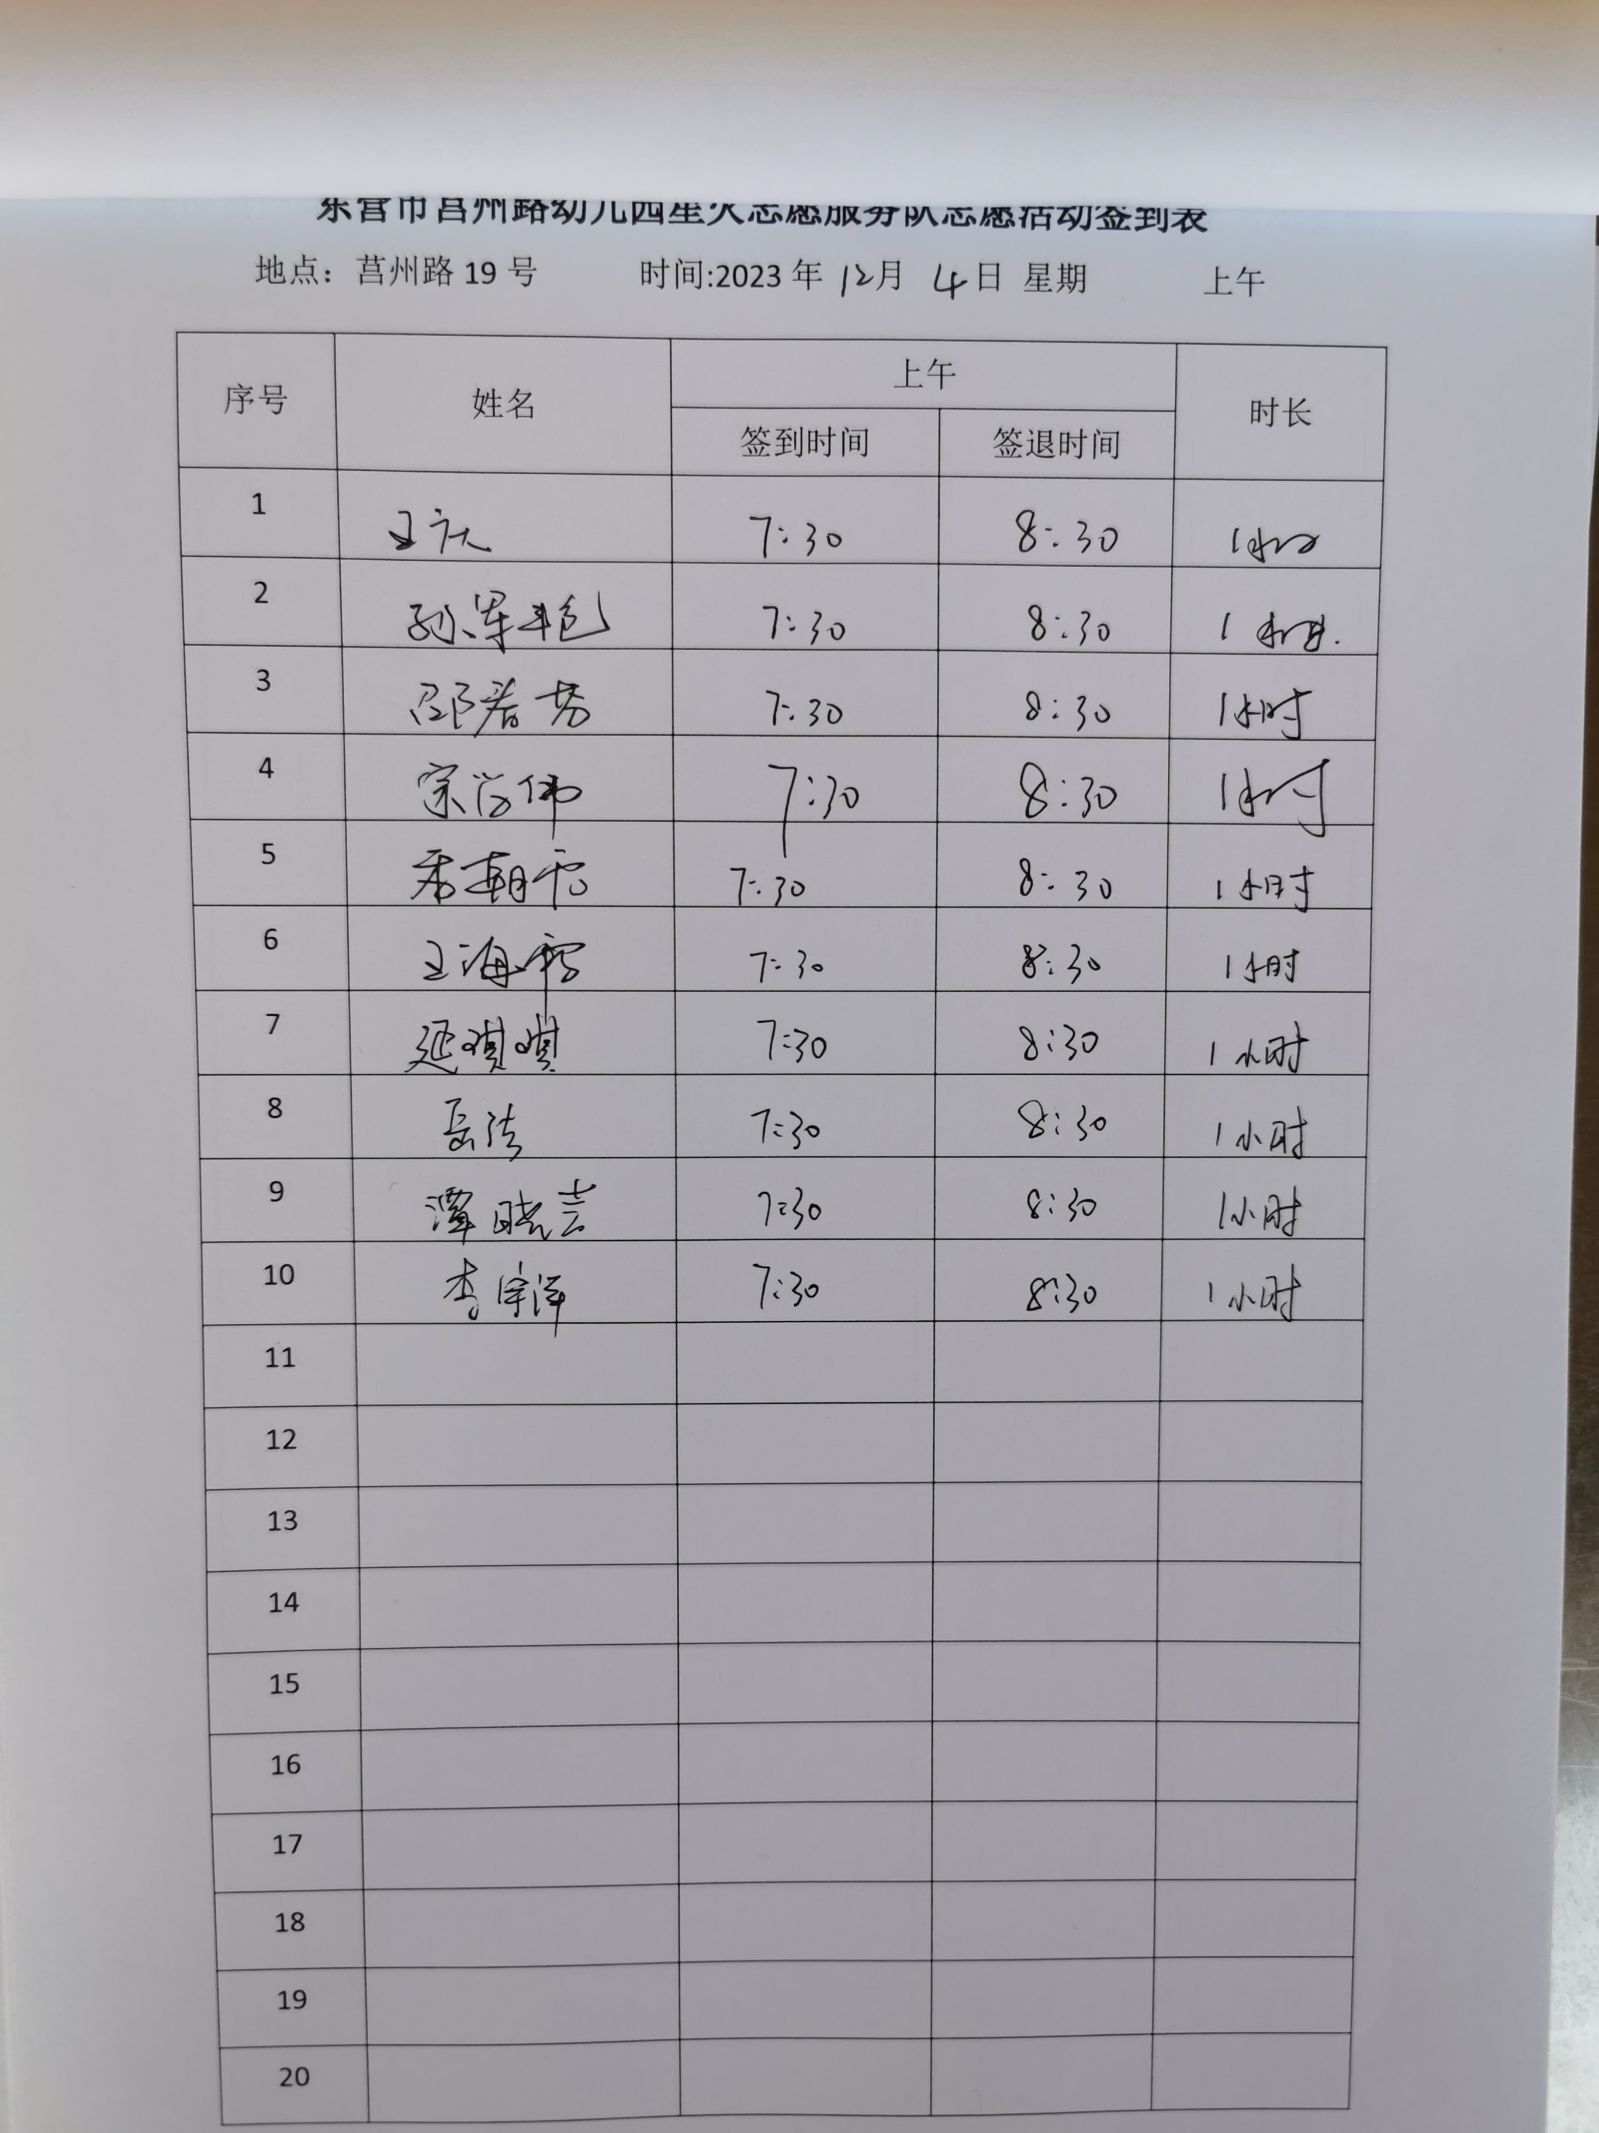 东营市莒州路幼儿园星火志愿服务队志愿活动签到表
地点：莒州路 19 号 时间:2023 年 12月 4日 星期 上午
序号 姓名 上午 时长
签到时间 签退时间
1 王庆 7:30 8:30 1小时
2 孙军艳 7:30 8:30 1小时.
3 邵春芳 7:30 8:30 1小时
4 宗学伟 7:30 8:30 1小时
5 朝霞 7:30 8:30 1小时
6 王海霞 7:30 8:30 1小时
7 延琪琪 7:30 8:30 1小时
8 岳洁 7:30 8:30 1小时
9 潭晓芸 7:30 8:30 1小时
10 李宗泽 7:30 8:30 1小时
11
12
13
14
15
16
17
18
19
20